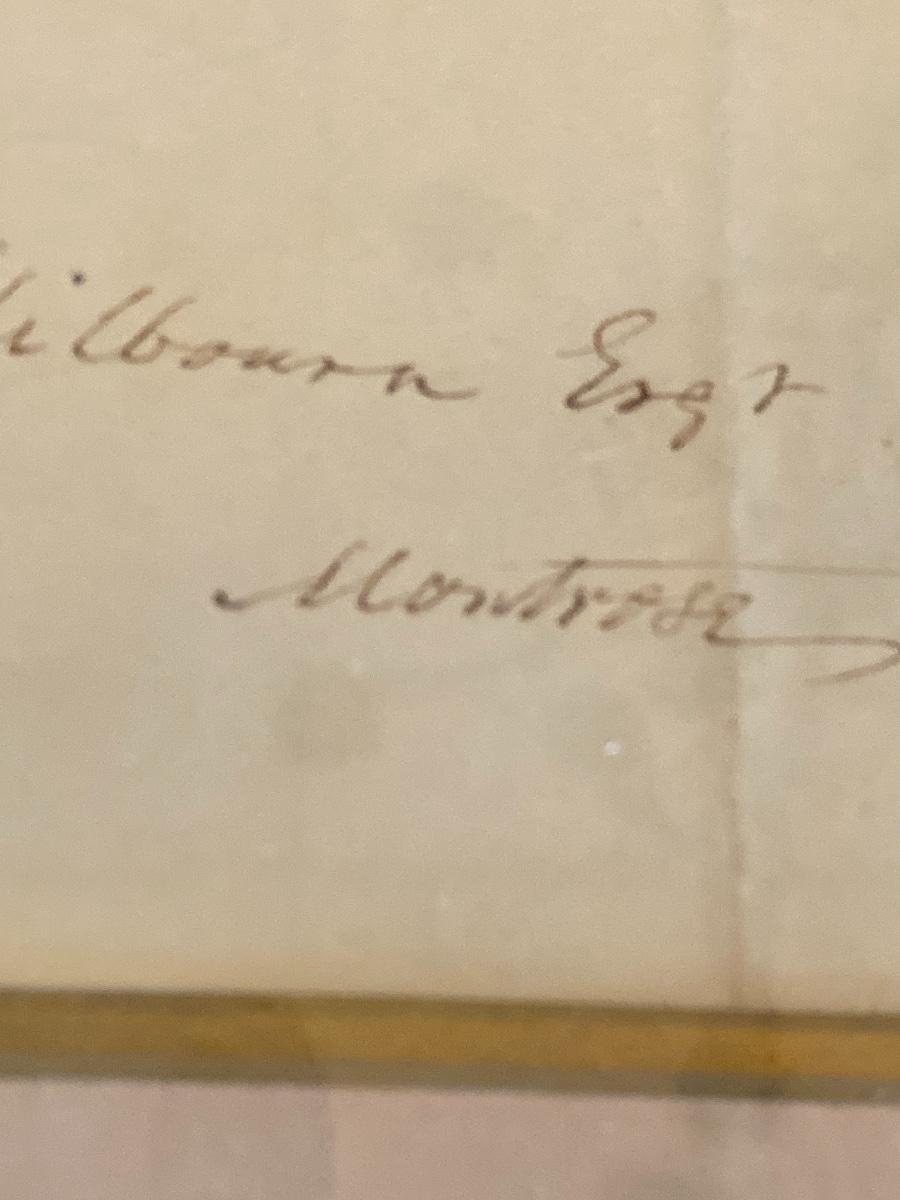 ilbourn Esqr
Montrose